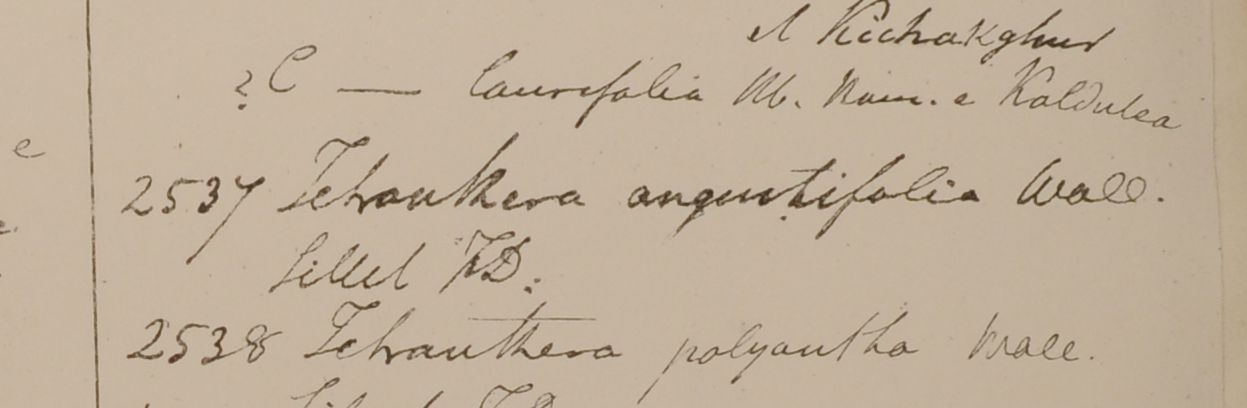 et Kichakghur
? C — laurifolia Hb. Ham. e Kaldulea
2537 Tetranthera angustifolia Wall.
Sillet FD.
2538 Tetranthera polyantha Wall.